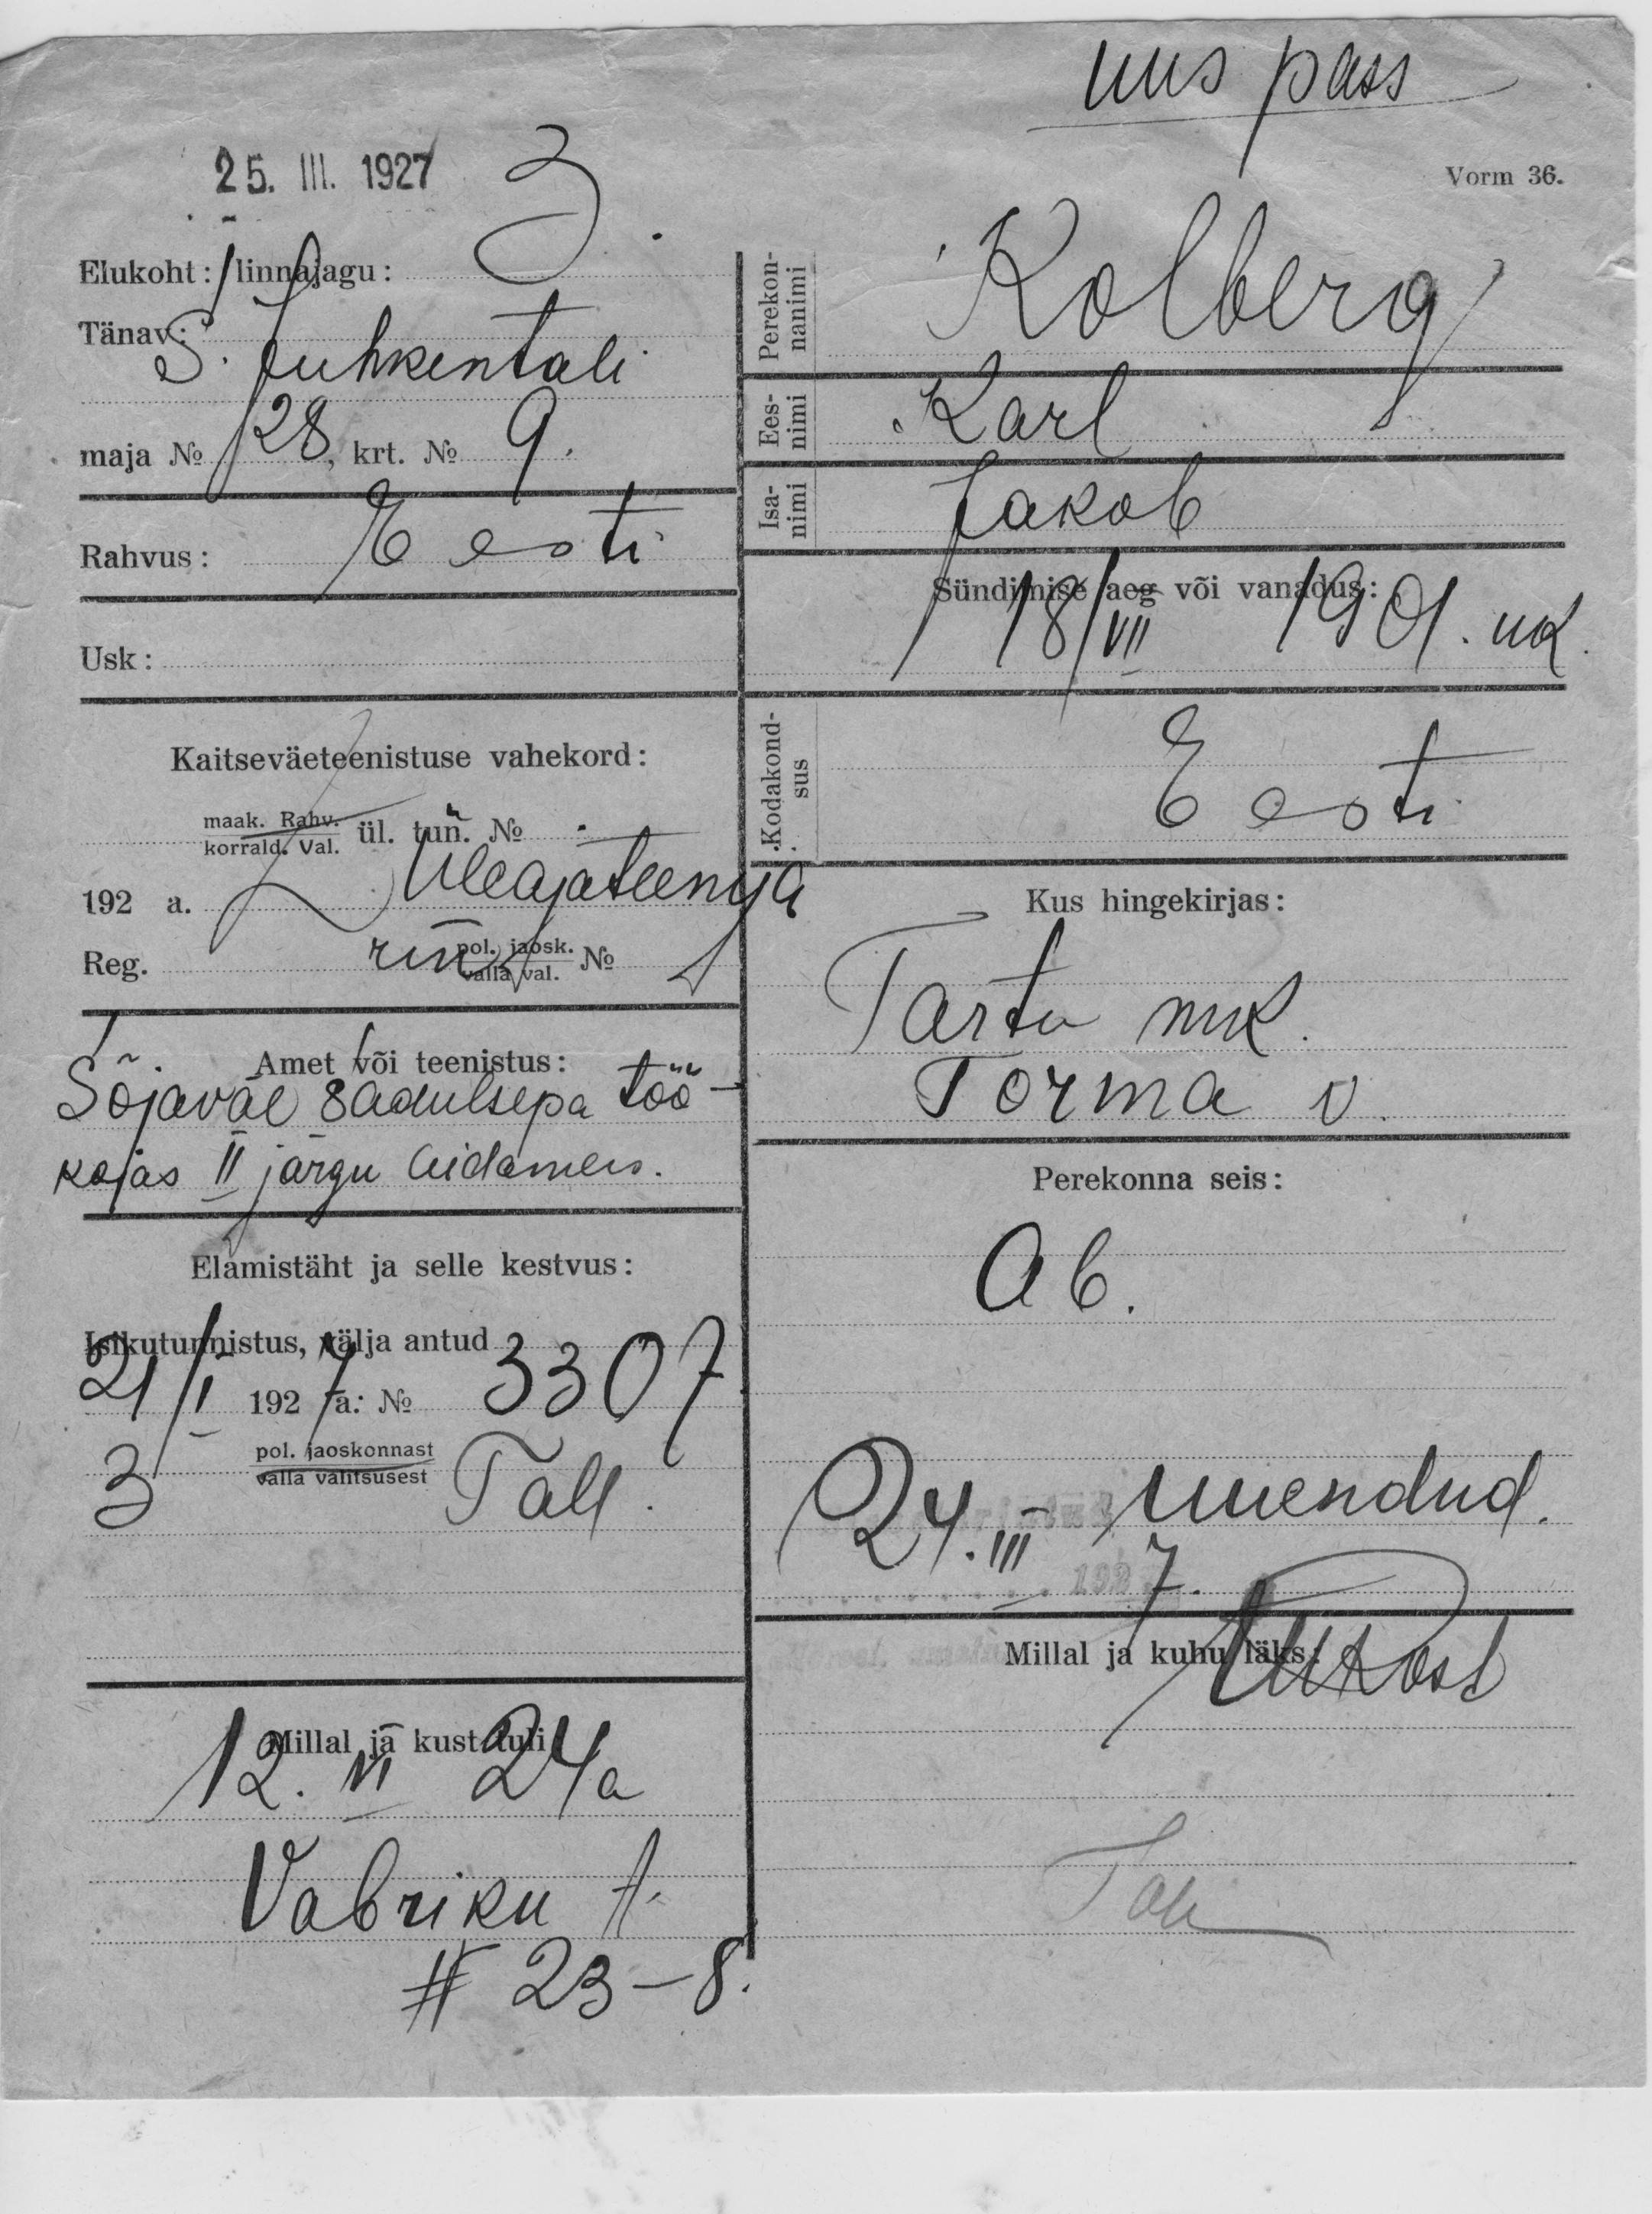 uus pass
25. III. 1927
3
Vorm 36.
Elukoht: linnajagu:
Tänav: S. Juhkentali
maja № 28, krt. № 9.
Rahvus: Eesti
Usk:
Kaitseväeteenistuse vahekord:
maak. Rahv.
korrald. Val. ül. tun. №
192 a. Üleajateenija
Reg. pol. jaosk.
valla val. №
Amet või teenistus:
Sõjaväe sadulsepa töö-
kojas II järgu
Elamistäht ja selle kestvus:
Isikutunnistus, välja antud
21/I 1927 a. № 3307
3 pol. jaoskonnast
valla valitsusest Tall.
Millal ja kust tuli
12. VI 24 a
Vabriku t.
# 23-8.
Perekon-
nanimi Kolberg
Ees-
nimi Karl
Isa-
nimi Jakob
Sündimise aeg või vanadus:
18/VII 1901. uk.
Kodakond-
sus Eesti
Kus hingekirjas:
Tartu mk.
Torma v.
Perekonna seis:
Ab.
24.III uuendud.
192 7.
Millal ja kuhu läks: